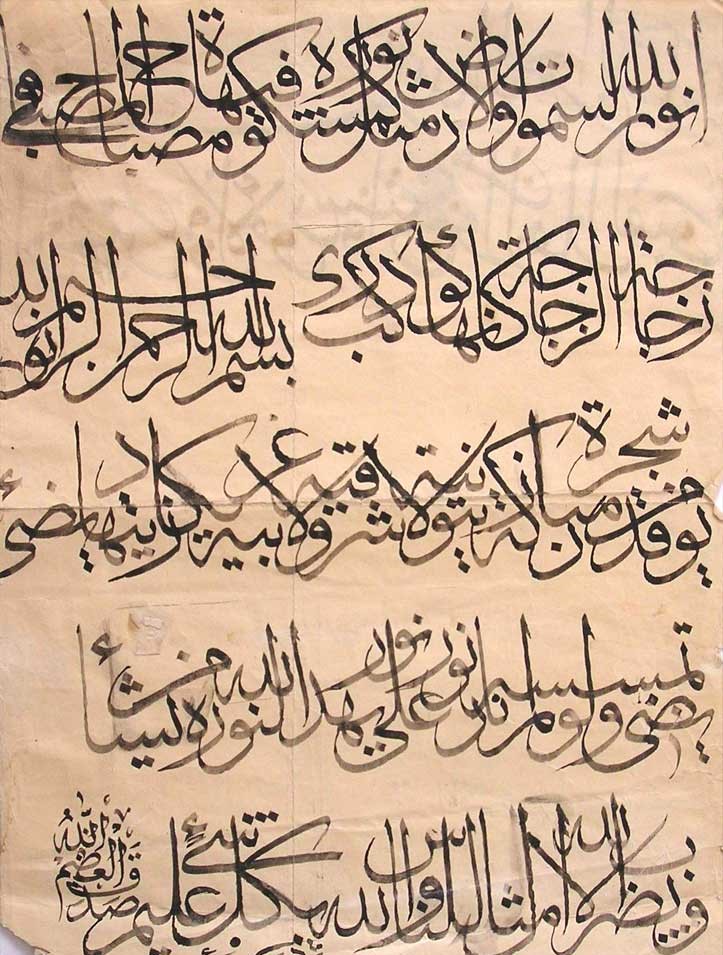 الله نور السموات والارض مثل نوره كمشكوة فيها مصباح المصباح فى
زجاجة الزجاجة كأنها كوكب درى
بسم الله الرحمن الرحيم الله نور
يوقد من شجرة مباركة زيتونة لا شرقية ولا غربية يكاد زيتها يضئ
يضئ ولو لم تمسسه نار نور على نور يهدى الله لنوره من يشاء
ويضرب الله الامثال للناس والله بكل شئ عليم
صدق الله العظيم